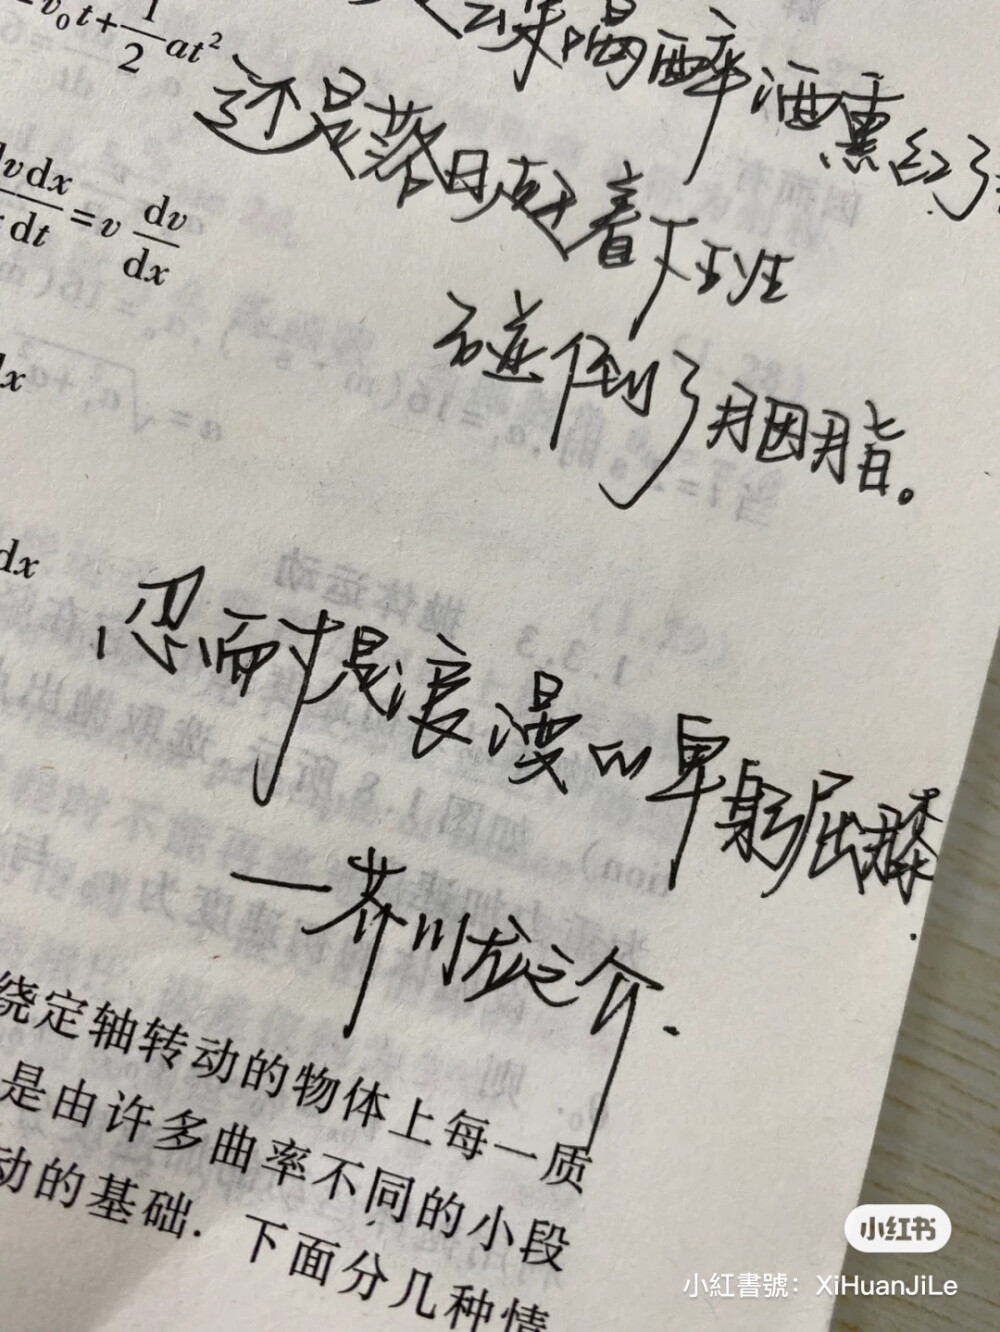 v₀t+1/2at²
云朵喝醉酒熏红了
还是落日赶着下班
碰倒了胭脂。
vdx/dt=v dv/dx
dx
dx
忍而才是浪漫的卑躬屈膝
—芥川龙之介.
绕定轴转动的物体上每一质
是由许多曲率不同的小段
动的基础. 下面分几种情
小红书
小紅書號: XiHuanJiLe